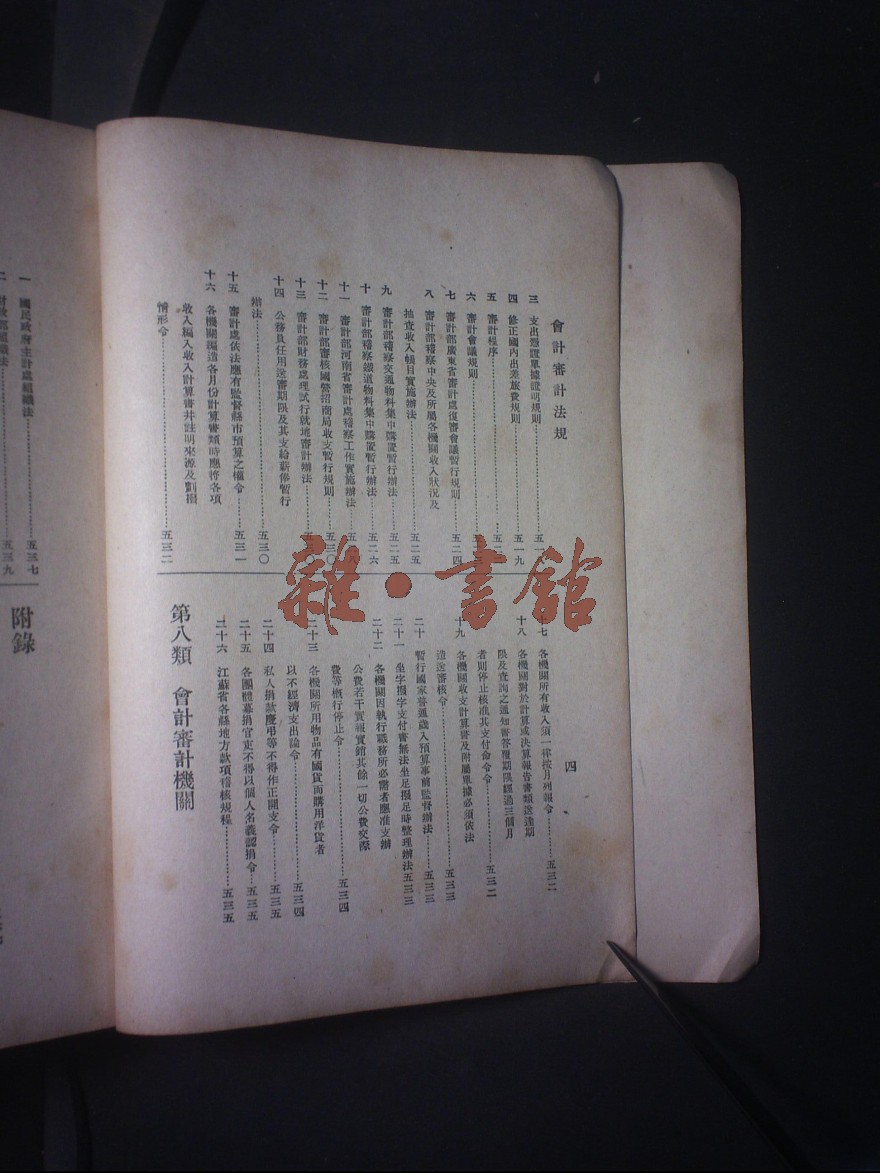 會計審計法規
三 支出憑證單據證明規則……五一
四 修正國內出差旅費規則……五一九
五 審計程序……五二
六 審計會議規則……五二
七 審計部廣東省審計處復審會議暫行規則……五二四
八 審計部稽察中央及所屬各機關收入狀況及
抽查收入帳目實施辦法……五二五
九 審計部稽察交通物料集中購置暫行辦法……五二五
十 審計部稽察鐵道物料集中購置暫行辦法……五二六
十一 審計部河南省審計處稽察工作實施辦法……五二
十二 審計部審核國營招商局收支暫行規則……五三〇
十三 審計部財務處理試行就地審計辦法……五
十四 公務員任用送審期限及其支給薪俸暫行
辦法……五三〇
十五 審計處依法應有監督縣市預算之權令……五三一
十六 各機關編造各月份計算書類時應將各項
收入編入收入計算書并註明來源及劃撥
情形令……五三二
十七 各機關所有收入須一律按月列報令……五三二
十八 各機關對於計算或決算報告書類送達期
限及查詢之通知書答覆期限經過三個月
者則停止核准其支付命令令……五三二
十九 各機關收支計算書及附屬單據必須依法
送審核令……五三三
二十 暫行國家普通歲入預算事前監督辦法……五三三
二十一 坐字撥字支付書無法坐足撥足時整理辦法五三三
二十二 各機關因執行職務所必需者應准支辦
公費若干實報實銷其餘一切公費交際
費等概行停止令……五三四
二十三 各機關所用物品有國貨而購用洋貨者
以不經濟支出論令……五三四
二十四 私人捐款慶弔等不得作正開支令……五三五
二十五 各團體募捐官吏不得以個人名義認捐令……五三五
二十六 江蘇省各縣地方款項稽核規程……五三五
第八類 會計審計機關
四
一 國民政府主計處組織法……五三七
二 財政部組織法……五三九
附錄
雜·書館